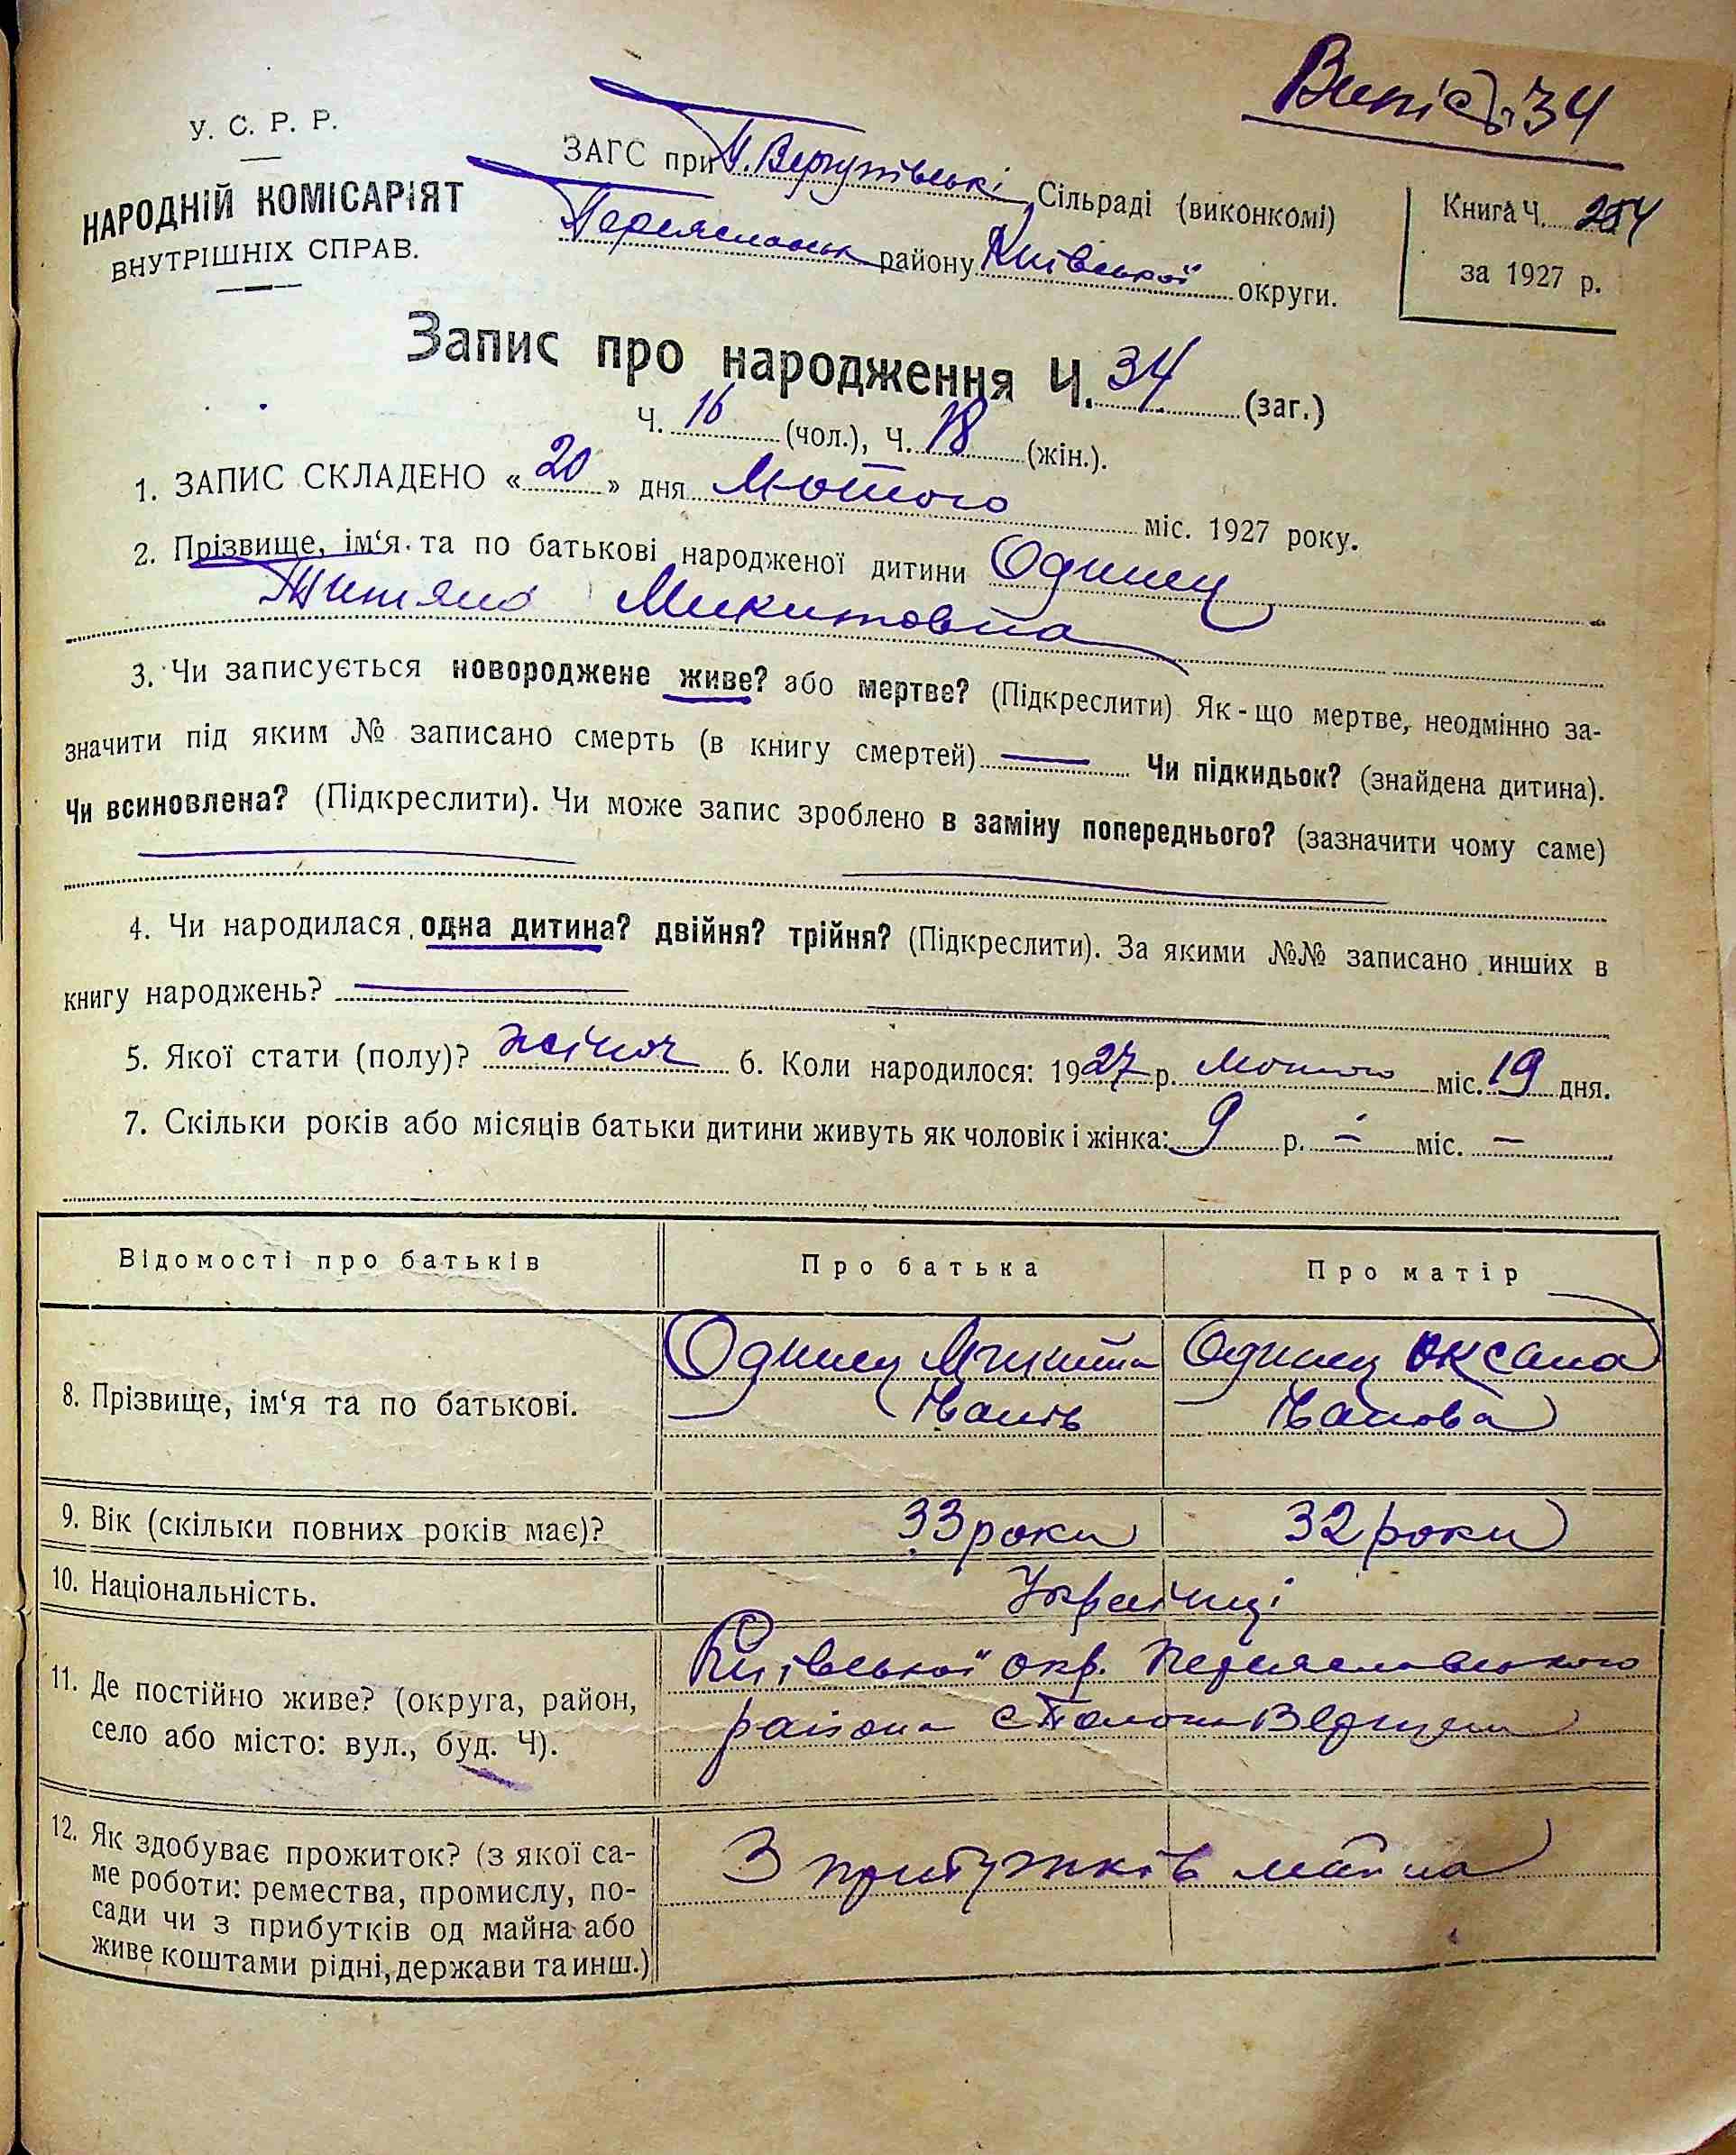 34
У. С. Р. Р.
НАРОДНІЙ КОМІСАРІЯТ
ВНУТРІШНІХ СПРАВ.
ЗАГС при Сільраді (виконкомі)
району Київської округи.
Книга Ч. 254
за 1927 р.
Запис про народження Ч. 34 (заг.)
Ч. 16 (чол.), Ч. 18 (жін.).
1. ЗАПИС СКЛАДЕНО «20» дня Лютого міс. 1927 року.
2. Прізвище, ім‘я та по батькові народженої дитини Одинец
Микитовна
3. Чи записується новороджене живе? або мертве? (Підкреслити) Як-що мертве, неодмінно за-
значити під яким № записано смерть (в книгу смертей) — Чи підкидьок? (знайдена дитина).
Чи всиновлена? (Підкреслити). Чи може запис зроблено в заміну попереднього? (зазначити чому саме)
4. Чи народилася одна дитина? двійня? трійня? (Підкреслити). За якими №№ записано инших в
книгу народжень?
5. Якої стати (полу)? жіноч 6. Коли народилося: 1927 р. Лютого міс. 19 дня.
7. Скільки років або місяців батьки дитини живуть як чоловік і жінка: 9 р. — міс. —
Відомості про батьків Про батька Про матір
8. Прізвище, ім‘я та по батькові.
Одинец Микита Одинец Оксана
Іванів Іванова
9. Вік (скільки повних років має)? 33 роки 32 роки
10. Національність. Українці
11. Де постійно живе? (округа, район,
село або місто: вул., буд. Ч).
Київської окр. Переяславського
района
12. Як здобуває прожиток? (з якої са-
ме роботи: ремества, промислу, по-
сади чи з прибутків од майна або
живе коштами рідні, держави та инш.)
З майна